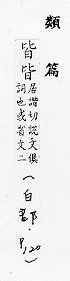 類篇
皆皆
居諧切說文俱
詞也或省文二
(白部. P.120)